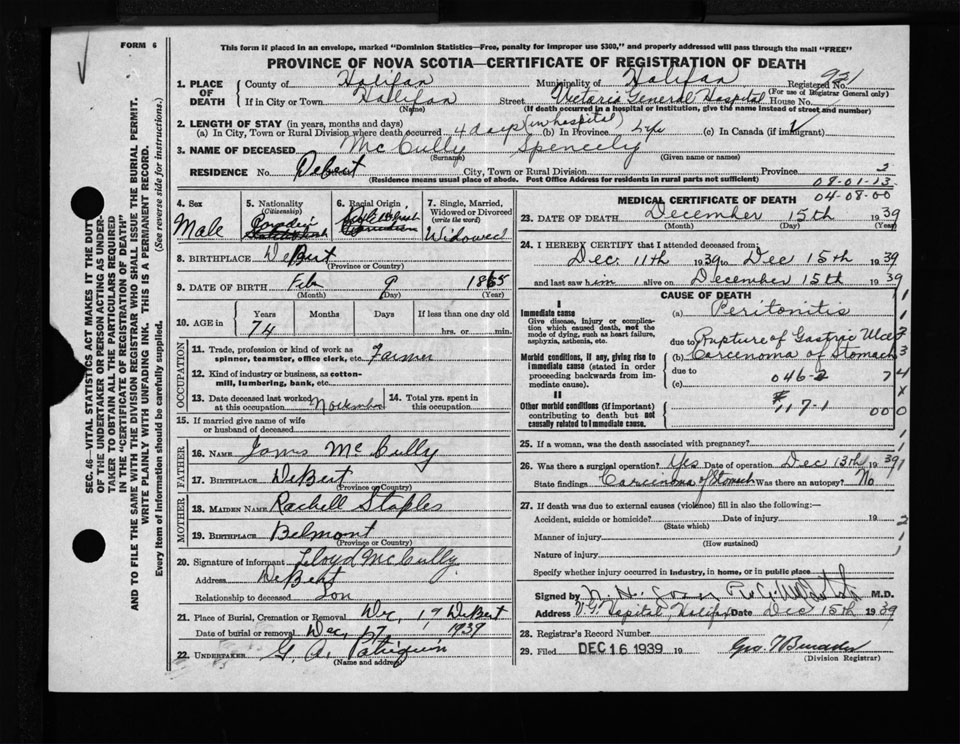 FORM 6
This form if placed in an envelope, marked "Dominion Statistics—Free, penalty for improper use $300," and properly addressed will pass through the mail "FREE"
PROVINCE OF NOVA SCOTIA—CERTIFICATE OF REGISTRATION OF DEATH
1. PLACE OF DEATH
County of Halifax Municipality of Halifax Registered No. 921
(For use of Registrar General only)
If in City or Town Halifax Street Victoria General Hospital House No.
(Name) (If death occurred in a hospital or institution, give the name instead of street and number)
2. LENGTH OF STAY (in years, months and days)
(a) In City, Town or Rural Division where death occurred 4 days (in hospital) (b) In Province Life (c) In Canada (if immigrant)
3. NAME OF DECEASED McCully Spencely
(Surname) (Given name or names)
RESIDENCE No. Debert City, Town or Rural Division Province 2
(Residence means usual place of abode. Post Office Address for residents in rural parts not sufficient)
08-01-13
04-08-00
4. Sex Male
5. Nationality (Citizenship)
6. Racial Origin
7. Single, Married, Widowed or Divorced (write the word) Widowed
8. BIRTHPLACE DeBert
(Province or Country)
9. DATE OF BIRTH Feb 9 1865
(Month) (Day) (Year)
10. AGE in Years Months Days If less than one day old
74 hrs. or min.
OCCUPATION
11. Trade, profession or kind of work as spinner, teamster, office clerk, etc. Farmer
12. Kind of industry or business, as cotton-mill, lumbering, bank, etc.
13. Date deceased last worked at this occupation November
14. Total yrs. spent in this occupation
15. If married give name of wife or husband of deceased
FATHER
16. NAME James McCully
17. BIRTHPLACE DeBert
(Province or Country)
MOTHER
18. MAIDEN NAME Rachell Staples
19. BIRTHPLACE Belmont
(Province or Country)
20. Signature of informant Lloyd McCully
Address DeBert
Relationship to deceased Son
21. Place of Burial, Cremation or Removal DeBert
Date of burial or removal Dec, 17 1939
22. UNDERTAKER G. A. Patriquin
(Name and address)
MEDICAL CERTIFICATE OF DEATH
23. DATE OF DEATH December 15th 1939
(Month) (Day) (Year)
24. I HEREBY CERTIFY that I attended deceased from:
Dec. 11th 1939 to Dec 15th 1939
and last saw him alive on December 15th 1939
CAUSE OF DEATH
I
Immediate cause
Give disease, injury or complication which caused death, not the mode of dying, such as heart failure, asphyxia, asthenia, etc.
(a) Peritonitis
due to Rupture of Gastric Ulcer
Morbid conditions, if any, giving rise to immediate cause (stated in order proceeding backwards from immediate cause).
(b) Carcenoma of Stomach
due to
(c) 046-2
II
Other morbid conditions (if important) contributing to death but not causally related to immediate cause.
#117-1
000
25. If a woman, was the death associated with pregnancy?
26. Was there a surgical operation? Yes Date of operation Dec 13th 1939
State findings Carcenoma of Stomach Was there an autopsy? No
27. If death was due to external causes (violence) fill in also the following:—
Accident, suicide or homicide? Date of injury 19
(State which)
Manner of injury
(How sustained)
Nature of injury
Specify whether injury occurred in industry, in home, or in public place
Signed by M.D.
Address V.G. Hospital, Halifax Date Dec 15th 1939
28. Registrar's Record Number
29. Filed DEC 16 1939 19
(Division Registrar)
SEC. 46—VITAL STATISTICS ACT MAKES IT THE DUTY
OF THE UNDERTAKER OR PERSON ACTING AS UNDERTAKER TO OBTAIN ALL THE PARTICULARS REQUIRED
IN THE "CERTIFICATE OF REGISTRATION OF DEATH"
AND TO FILE THE SAME WITH THE DIVISION REGISTRAR WHO SHALL ISSUE THE BURIAL PERMIT.
WRITE PLAINLY WITH UNFADING INK. THIS IS A PERMANENT RECORD.
Every item of Information should be carefully supplied. (See reverse side for instructions.)